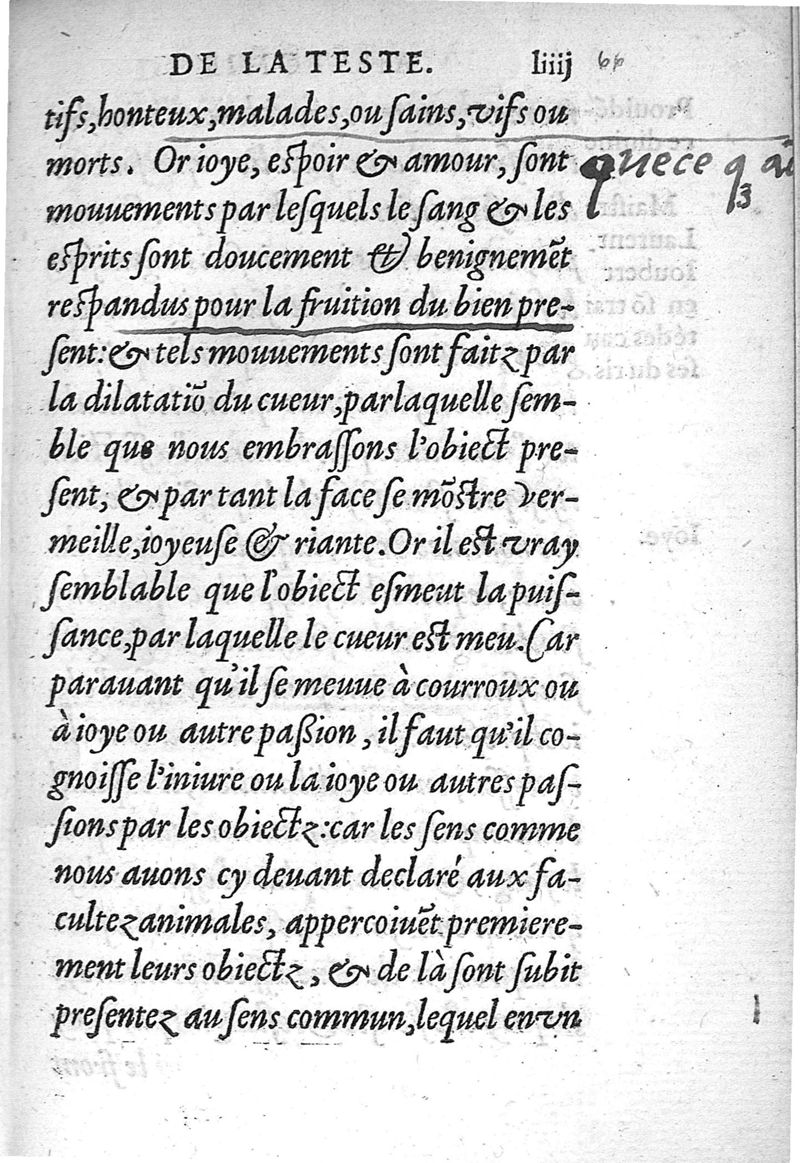 DE LA TESTE. liiij 66
tifs, honteux, malades, ou ſains, vifs ou
morts. Or ioye, eſpoir & amour, ſont
quece q
3
mouuements par leſquels le ſang & les
eſprits ſont doucement & benignemēt
reſpandus pour la fruition du bien pre-
ſent: & tels mouuements ſont faitz par
la dilatatiō du cueur, par laquelle ſem-
ble que nous embraſſons l'obiect pre-
ſent, & par tant la face ſe mōſtre ver-
meille, ioyeuſe & riante. Or il eſt vray
ſemblable que l'obiect eſmeut la puiſ-
ſance, par laquelle le cueur eſt meu. Car
parauant qu'il ſe meuue à courroux ou
à ioye ou autre paßion, il faut qu'il co-
gnoiſſe l'iniure ou la ioye ou autres paſ-
ſions par les obiectz: car les ſens comme
nous auons cy deuant declaré aux fa-
cultez animales, apperçoiuēt premiere-
ment leurs obiectz, & de là ſont ſubit
preſentez au ſens commun, lequel en vn